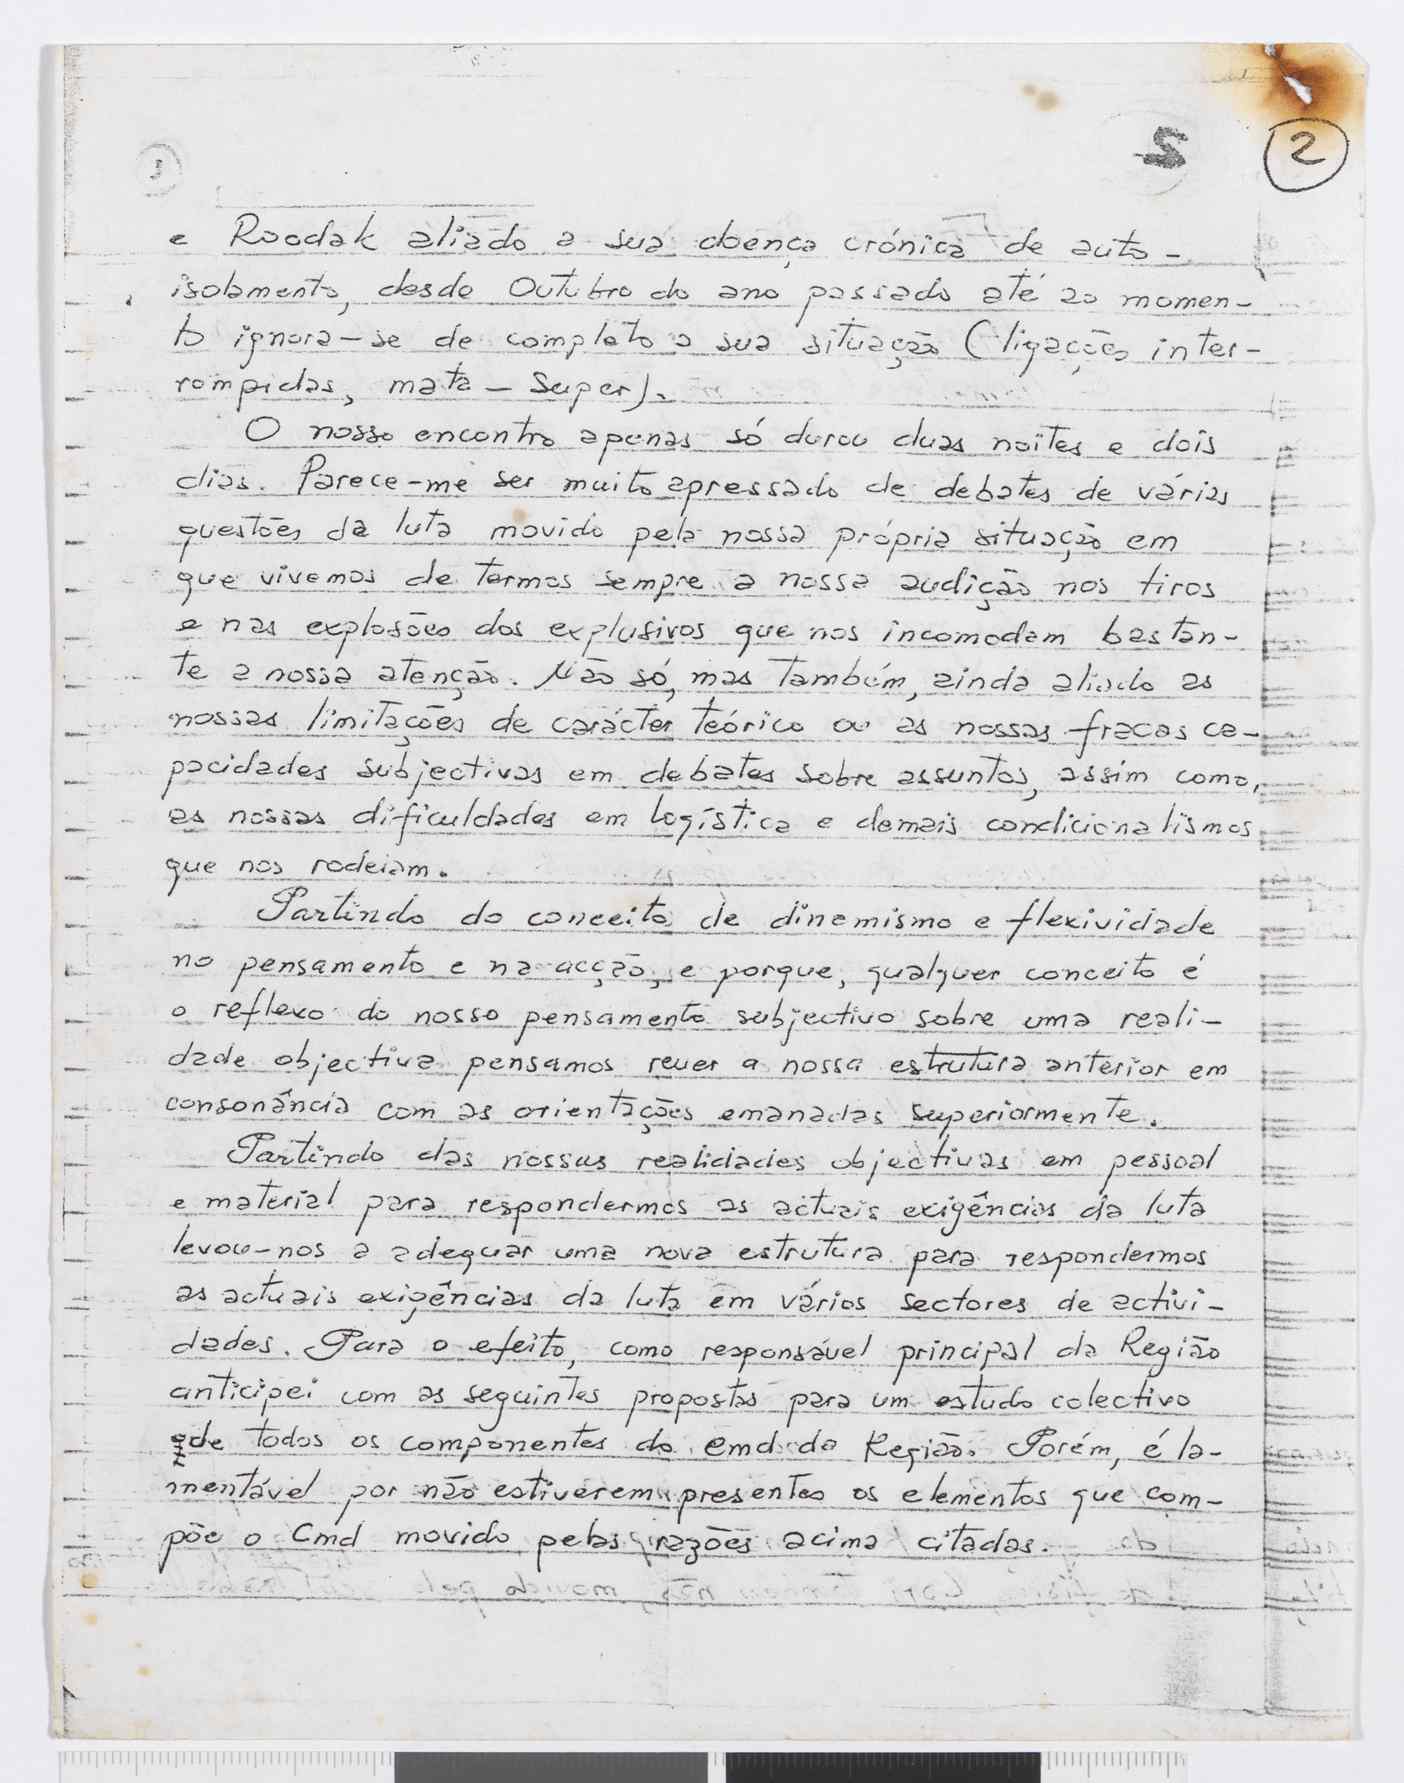 2
e Roodak aliado a sua doença crónica de auto-
isolamento, desde Outubro do ano passado até ao momen-
to ignora-se de completo a sua situação (ligações inter-
rompidas, mata - Super).
O nosso encontro apenas só durou duas noites e dois
dias. Parece-me ser muito apressado de debates de várias
questões da luta movido pela nossa própria situação em
que vivemos de termos sempre a nossa audição nos tiros
e nas explosões dos explusivos que nos incomodam bastan-
te a nossa atenção. Não só, mas também, ainda aliado as
nossas limitações de carácter teórico ou as nossas fracas ca-
pacidades subjectivas em debates sobre assuntos, assim como,
as nossas dificuldades em logística e demais condicionalismos
que nos rodeiam.
Partindo do conceito de dinamismo e flexividade
no pensamento e na acção, e porque, qualquer conceito é
o reflexo do nosso pensamento subjectivo sobre uma reali-
dade objectiva pensamos rever a nossa estrutura anterior em
consonância com as orientações emanadas superiormente.
Partindo das nossas realidades objectivas em pessoal
e material para respondermos as actuais exigências da luta
levou-nos a adequar uma nova estrutura para respondermos
as actuais exigências da luta em vários sectores de activi-
dades. Para o efeito, como responsável principal da Região
anticipei com as seguintes propostas para um estudo colectivo
de todos os componentes do cmd da Região. Porém, é la-
mentável por não estiverem presentes os elementos que com-
põe o Cmd movido pelas razões acima citadas.